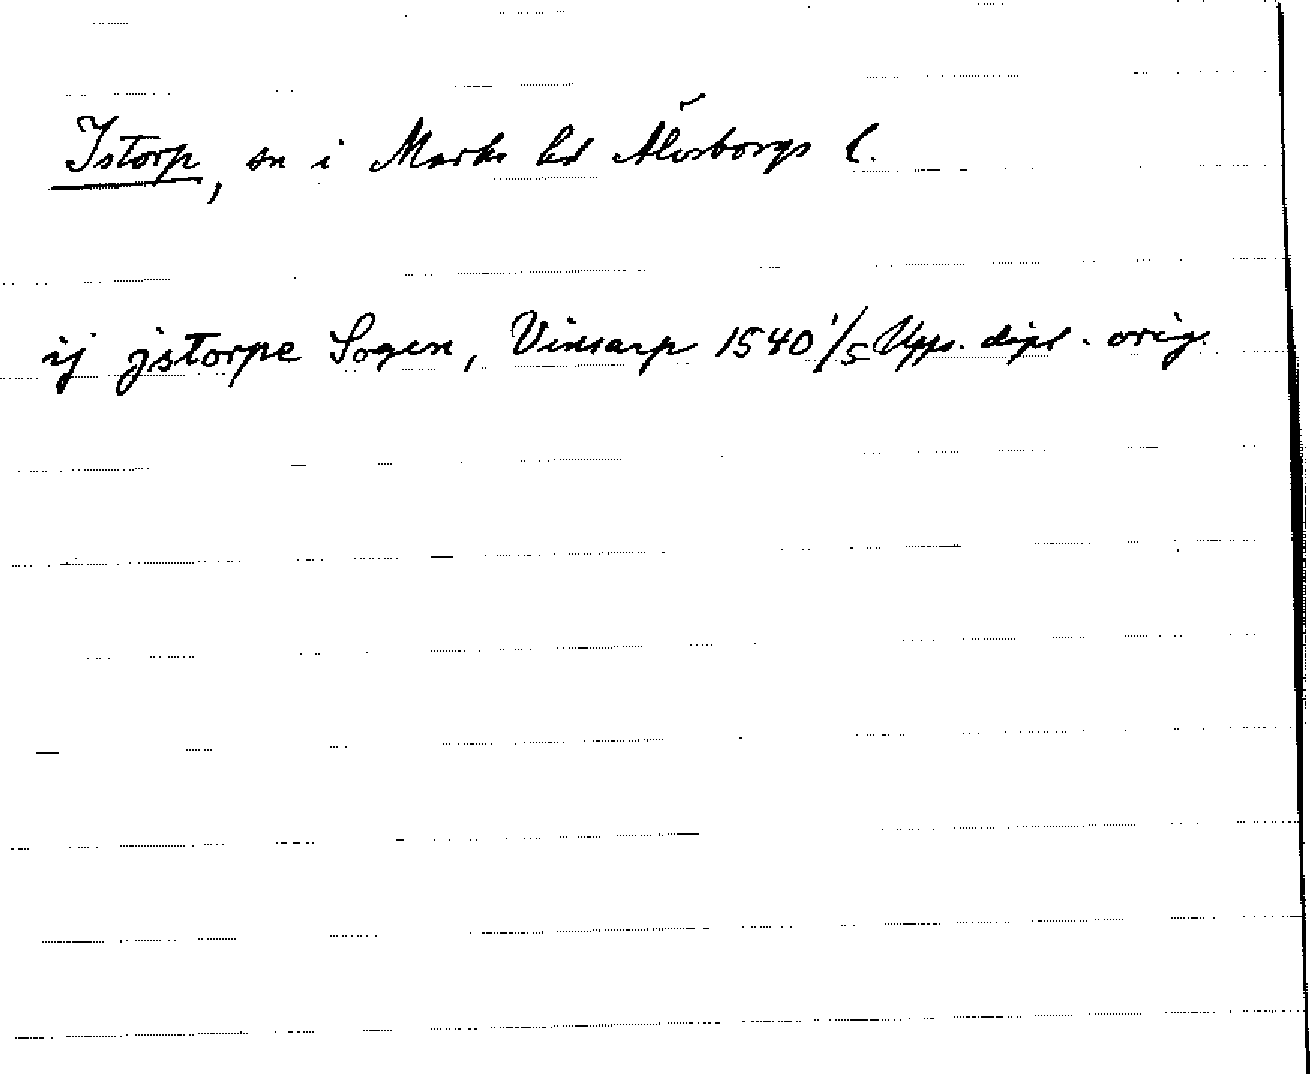 Istorp, sn i Marks hd Älvsborgs l.
ij jstorpe Sogen, Vinsarp 1540 1/5 Upps. dipl. orig.